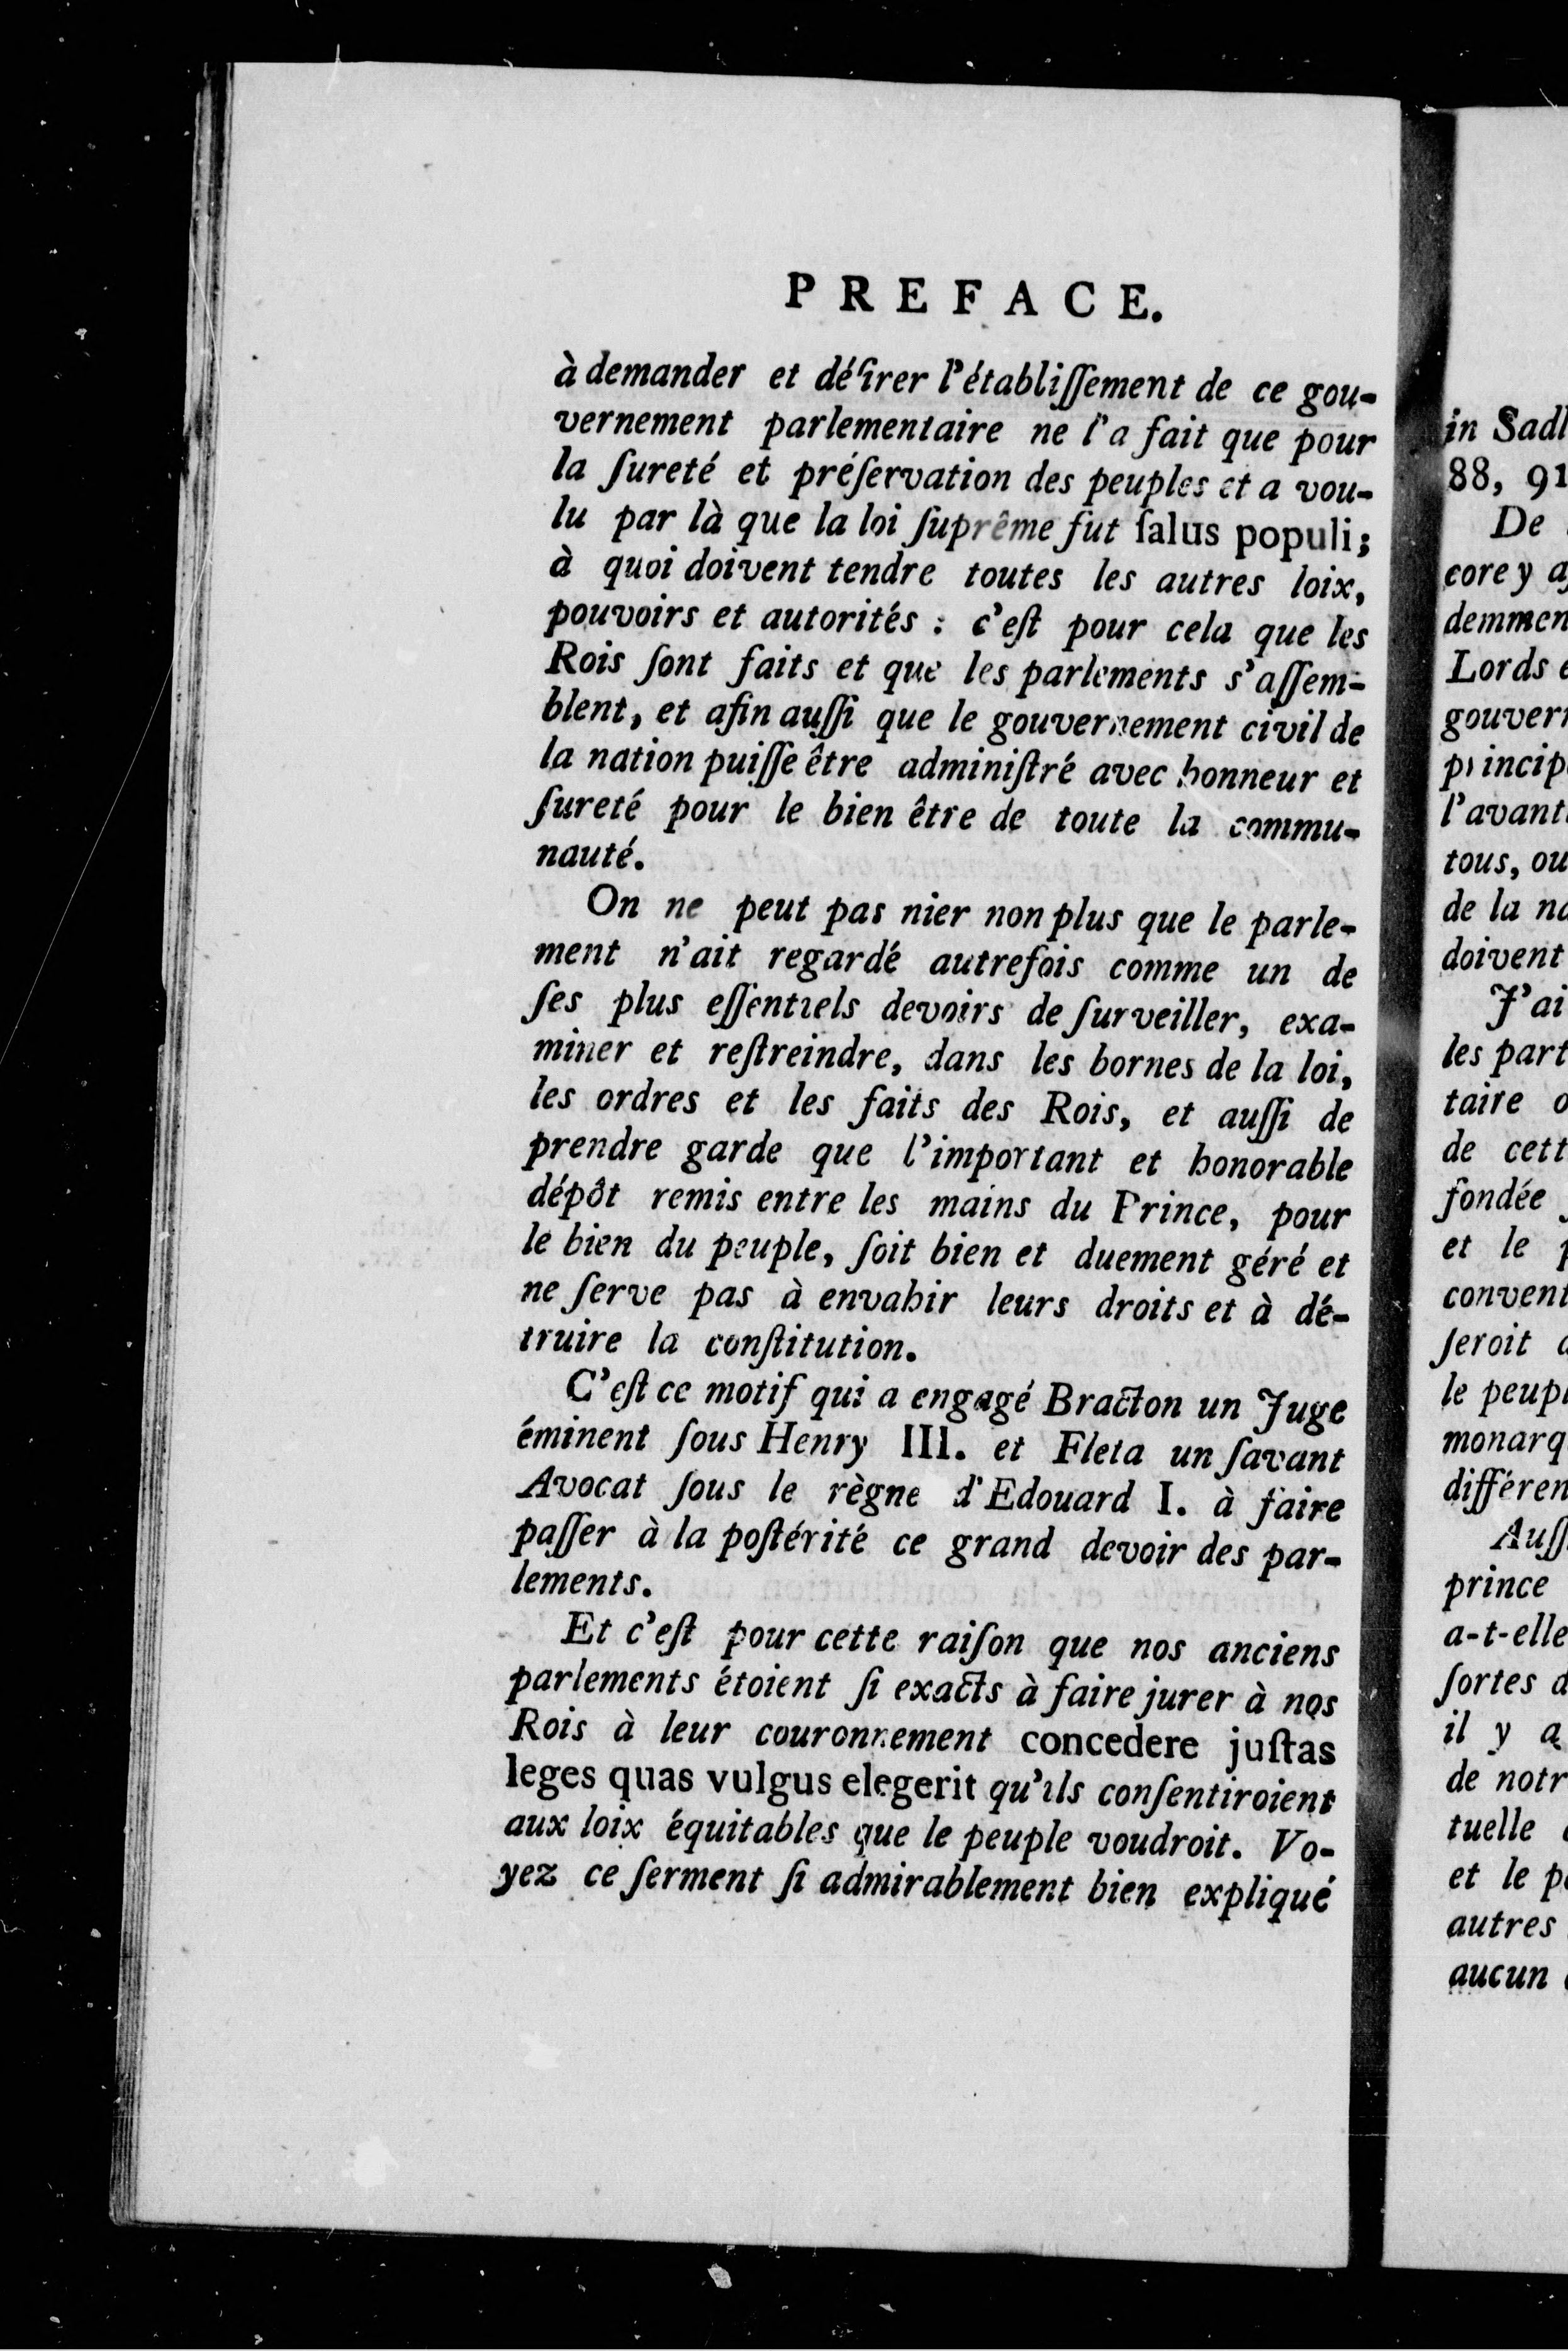 PREFACE.
à demander et déſirer l'établiſſement de ce gou-
vernement parlementaire ne l'a fait que pour
la ſureté et préſervation des peuples et a vou-
lu par là que la loi ſuprême fut ſalus populi;
à quoi doivent tendre toutes les autres loix,
pouvoirs et autorités : c'eſt pour cela que les
Rois ſont faits et que les parlements s'aſſem-
blent, et afin auſſi que le gouvernement civil de
la nation puiſſe être adminiſtré avec honneur et
ſureté pour le bien être de toute la commu-
nauté.
On ne peut pas nier non plus que le parle-
ment n'ait regardé autrefois comme un de
ſes plus eſſentiels devoirs de ſurveiller, exa-
miner et reſtreindre, dans les bornes de la loi,
les ordres et les faits des Rois, et auſſi de
prendre garde que l'important et honorable
dépôt remis entre les mains du Prince, pour
le bien du peuple, ſoit bien et duement géré et
ne ſerve pas à envahir leurs droits et à dé-
truire la conſtitution.
C'eſt ce motif qui a engagé Bracton un Juge
éminent ſous Henry III. et Fleta un ſavant
Avocat ſous le règne d'Edouard I. à faire
paſſer à la poſtérité ce grand devoir des par-
lements.
Et c'eſt pour cette raiſon que nos anciens
parlements étoient ſi exacts à faire jurer à nos
Rois à leur couronnement concedere juſtas
leges quas vulgus elegerit qu'ils conſentiroient
aux loix équitables que le peuple voudroit. Vo-
yez ce ſerment ſi admirablement bien expliqué
in Sadl
88, 91
De
core y a
demmen
Lords
gouver
princip
l'avant
tous, ou
de la
doivent
J'ai
les part
taire
de cett
fondée
et le
convent
ſeroit
le peup
monarq
différen
Auſſ
prince
a-t-elle
ſortes
il y a
de notr
tuelle
et le
autres
aucun